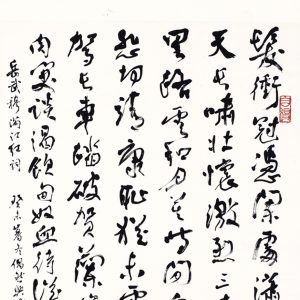 髮衝冠憑闌處瀟
天長嘯壯懷激烈三
里路雲和月莫等閒
悲切靖康恥猶未雪
駕長車踏破賀蘭
肉笑談渴飲匈奴血待從
岳武穆滿江紅詞 癸未